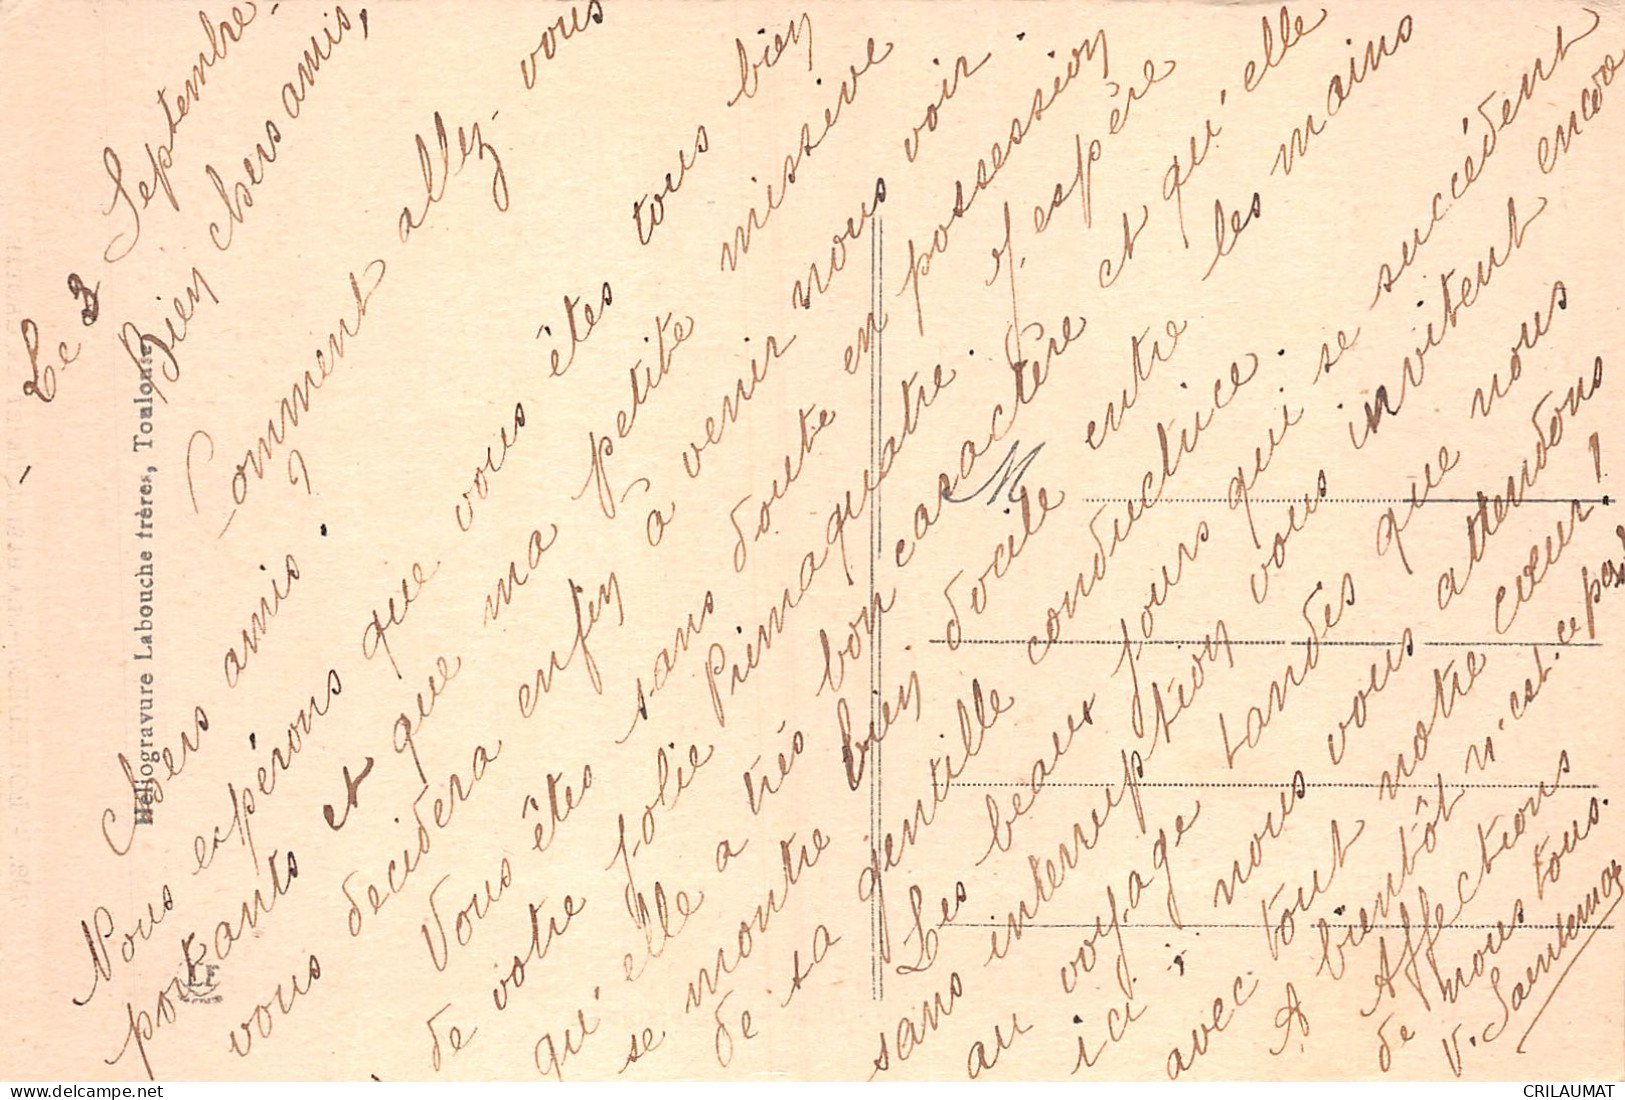 Le 3 Septembre -
Bien chers amis,
Comment allez-vous
Chers amis ?
Nous espérons que vous êtes tous bien
portants et que ma petite missive
vous decidera enfin à venir nous voir.
Vous êtes sans doute en possession
de votre jolie Primaquatre. J'espère
qu'elle a très bon caractère et qu'elle
se montre bien docile entre les mains
de sa gentille conductrice.
Les beaux jours qui se succédent
sans interruption vous invitent encore
au voyage tandis que nous
ici ; nous vous attendons
avec tout notre cœur !
A bientôt n'est-ce pas
Affections
de nous tous.
V.
Héliogravure Labouche frères, Toulouse
LF
CRILAUMAT